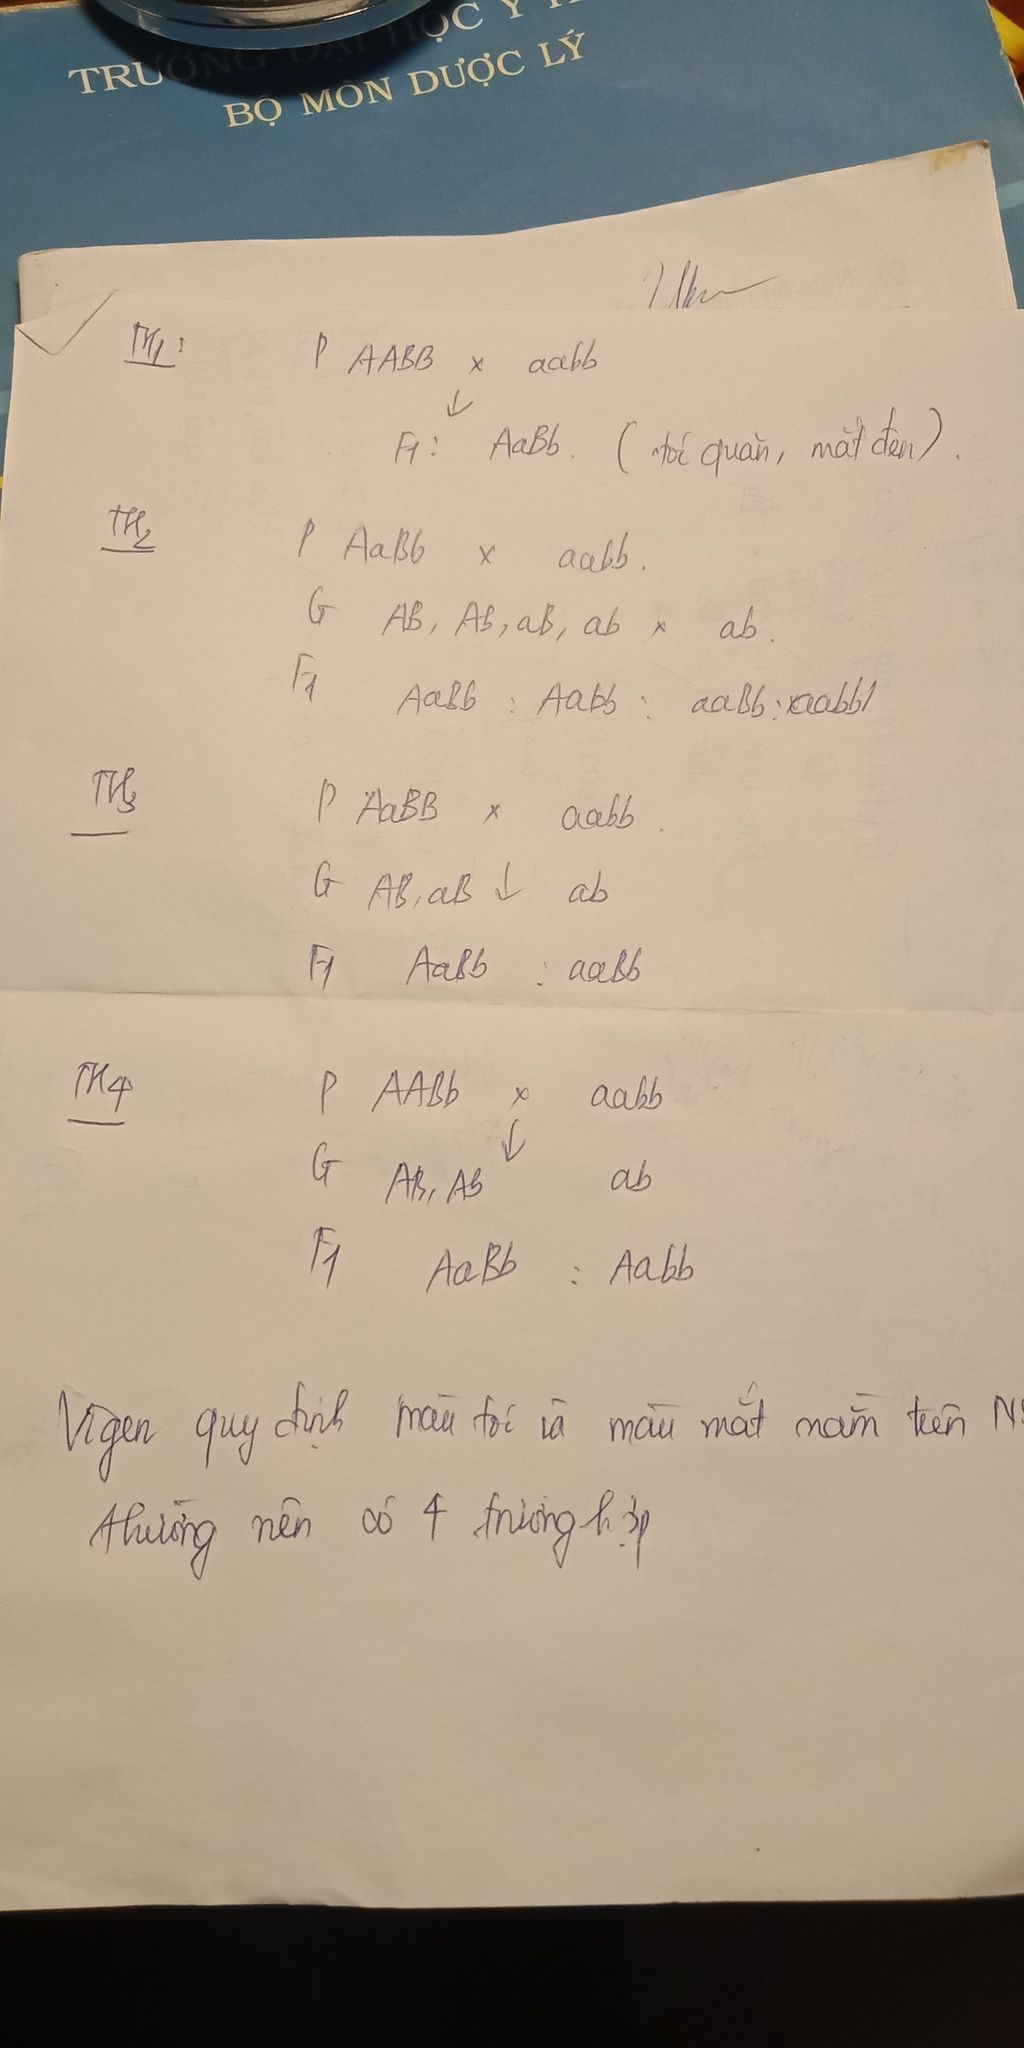 TRƯỜNG ĐẠI HỌC Y
BỘ MÔN DƯỢC LÝ
TH1: P AABB x aabb
↓
F1: AaBb. (tóc quăn, mắt đen).
TH2 P AaBb x aabb.
G AB, Ab, aB, ab x ab.
F1 AaBb : Aabb : aaBb : aabb
TH3 P AaBB x aabb.
G AB, aB ↓ ab
F1 AaBb : aaBb
TH4 P AABb x aabb
↓
G AB, Ab ab
F1 AaBb : Aabb
Vì gen quy định màu tóc và màu mắt nằm trên
thường nên có 4 trường hợp